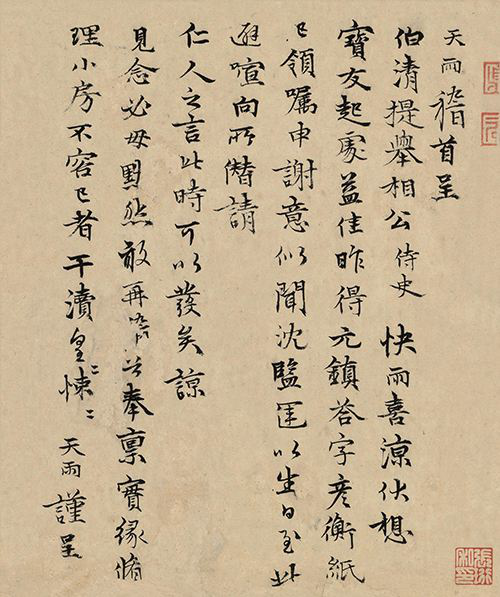 天雨稽首呈
伯清提舉相公侍史 快雨喜涼伏想
寶友起處益佳昨得元鎮荅字彥衡紙
已領嘱申謝意似聞沈監運以生日至此
避喧向所僭請
仁人之言此時可以發矣諒
見念必毋默然敢再 奉禀實緣脩
理小房不容已者干瀆皇〻悚〻
天雨謹呈